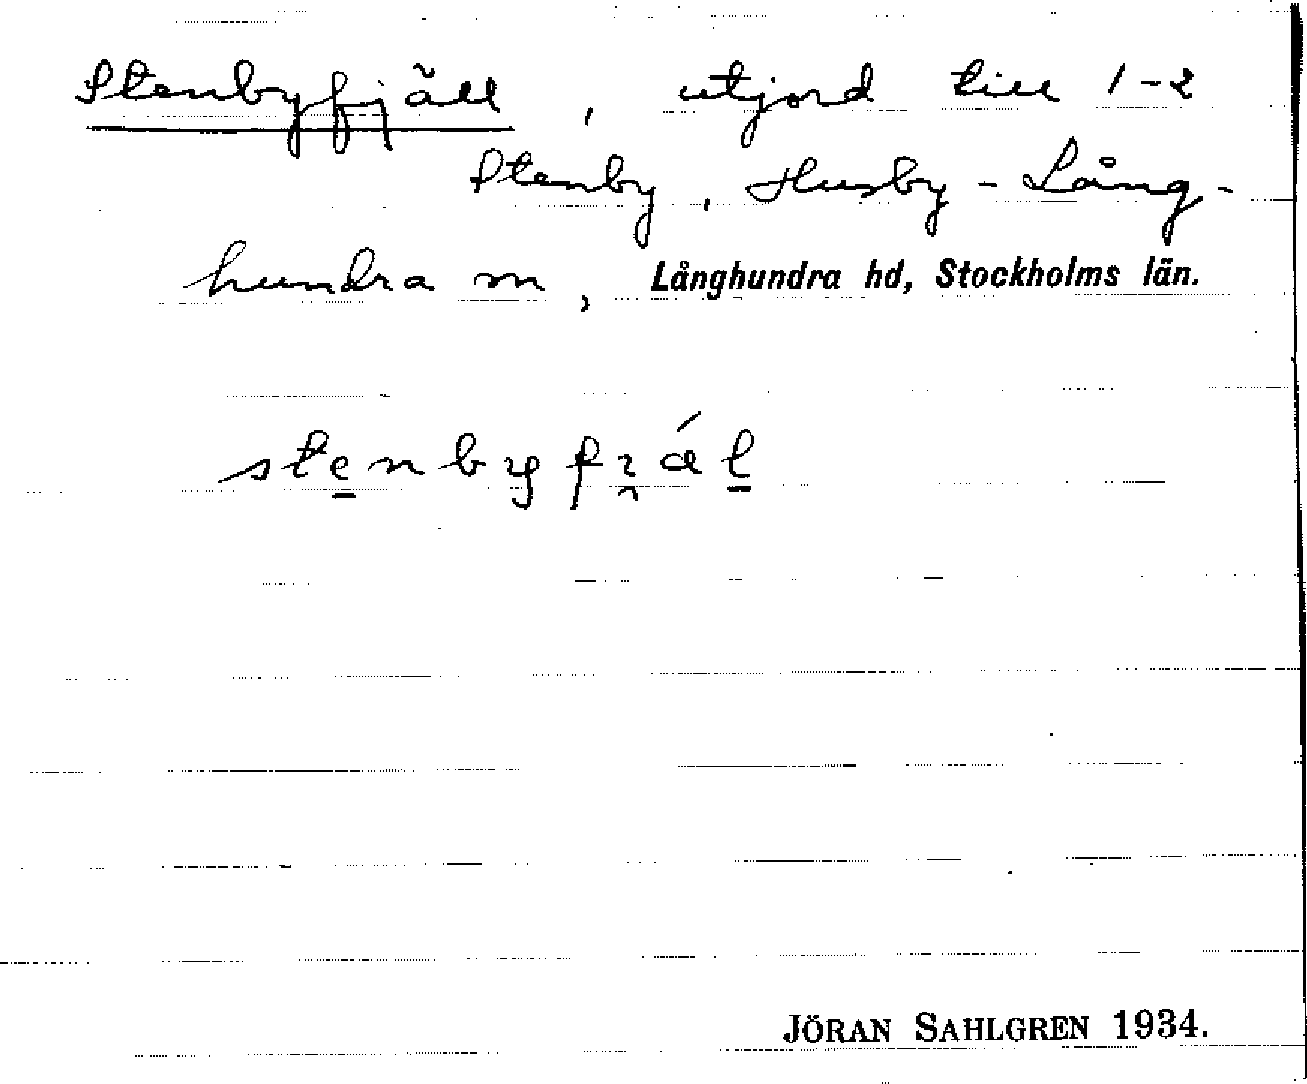 Stenbyfjäll, utjord till 1-2
Stenby, Husby-Lång-
hundra sn, Långhundra hd, Stockholms län.
ste̲nbyfı̯ál̲
JÖRAN SAHLGREN 1934.